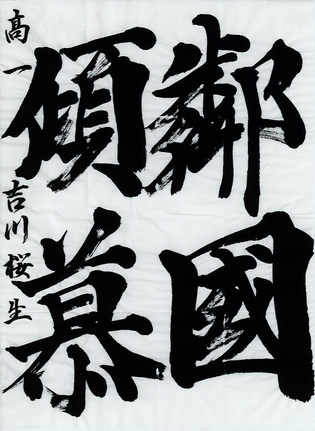 鄰國
傾慕
高一 吉川桜生